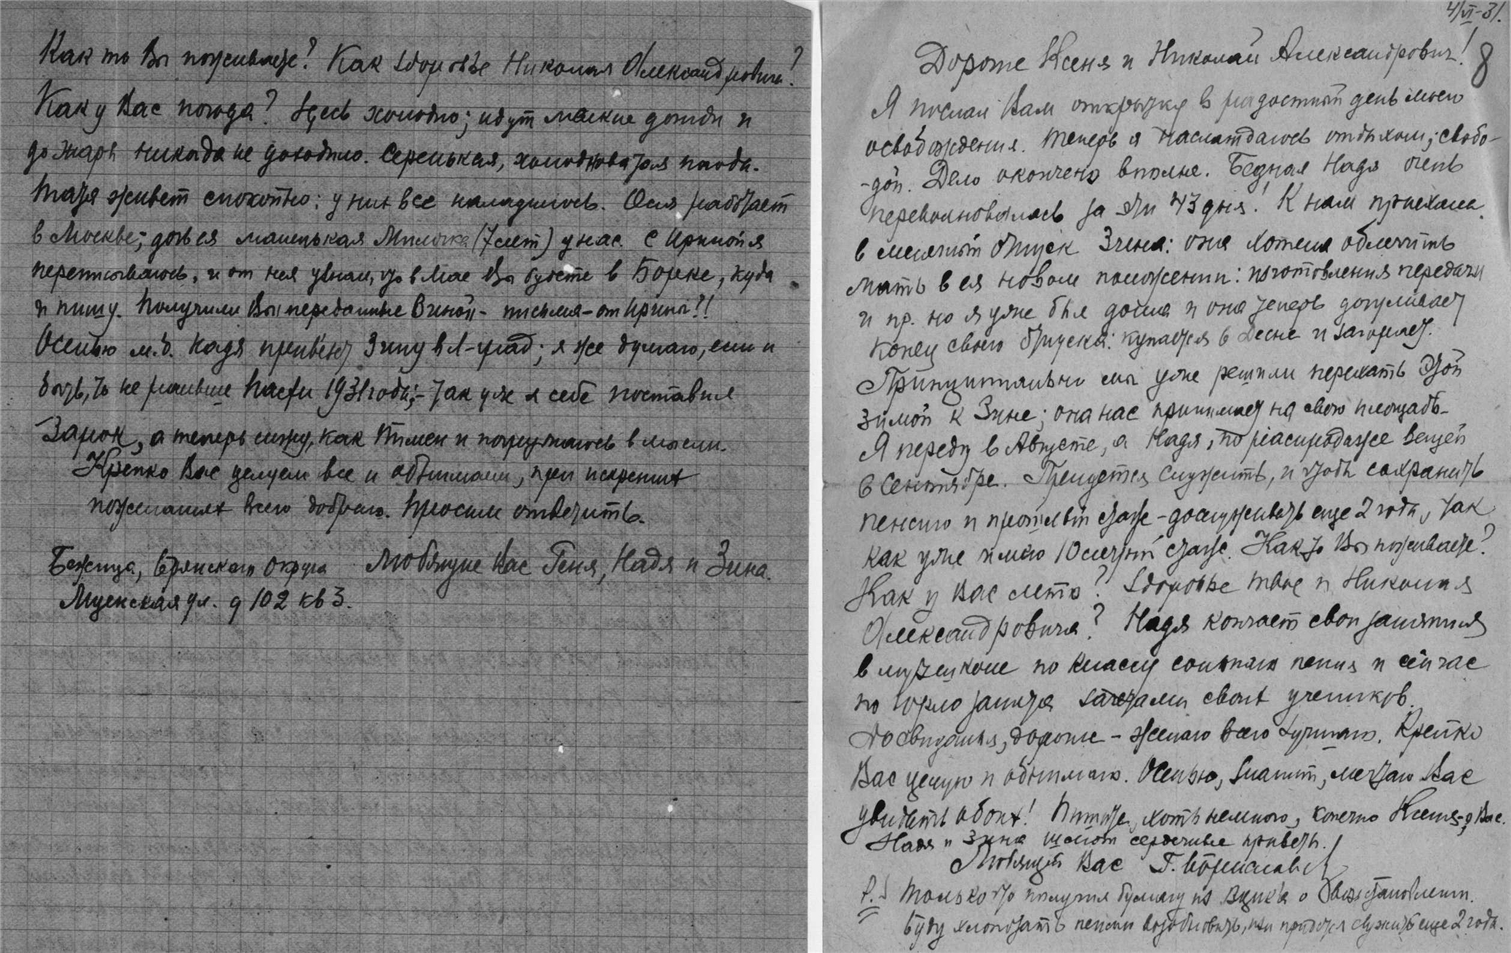 Как то Вы поживаете? Как здоровье Николая Александровича?
Как у Вас погода? Здесь холодно; идут мелкие дожди и
до жары никогда не доходило. Серенькая, холодноватая погода.
Таня живет спокойно: у них все наладилось. Оля работает
в Москве; дочь ея маленькая Милочка (7 лет) у нас. С Ириной я
переписываюсь, и от нея узнал, что в Мае Вы будете в Борке, куда
и пишу. Получили Вы переданные Зиной - письма - от Ирины?!
Осенью м.б. Надя привезет Зину в Л-град; я же думаю, если и
быть, то не раньше Пасхи 1931 года; - так уж я себе поставил
Зарок, а теперь сижу, как Пимен и погружаюсь в мысли.
Крепко Вас целуем все и обнимаем, при искренних
пожеланиях всего доброго. Просим ответить.
Любящие Вас Геня, Надя и Зина.
Бежица, Брянского округа
Мценская ул. д 102 кв 3.
4/VI-31.
8
Дорогие Ксеня и Николай Александрович!
Я послал Вам открытку в радостный день моего
освобождения. Теперь я наслаждаюсь отдыхом, свобо-
-дой. Дело окончено вполне. Бедная Надя очень
переволновалась за эти 43 дня! К нам приехала
в месячный отпуск Зина: она хотела облегчить
мать в ея новом положении: изготовления передачи
и пр. но я уже был дома и она теперь догуливает
конец своего отпуска: купается в Десне и загорает.
Принципиально мы уже решили переехать этой
зимой к Зине; она нас принимает на свою площадь -
Я перееду в Августе, а Надя, по распродаже вещей
в Сентябре. Придется служить, и чтобы сохранить
пенсию и прожитый стаж - дослуживать еще 2 года, так
как уже имею 10 летний стаж. Как то Вы поживаете?
Как у Вас лето? Здоровье твое и Николая
Александровича? Надя кончает свои занятия
в музшколе по классу сольного пения и сейчас
по горло занята зачетами своих учеников.
До свиданья, дорогие - желаю всего лучшего. Крепко
Вас целую и обнимаю. Осенью, значит, мечтаю Вас
увидать обоих! Пишите, хоть немного, конечно Ксеня,
Надя и Зина шлют сердечные приветы.
Любящий Вас Г.
P.S Только что получил бумагу из о восстановлении.
Буду хлопотать пенсии возобновить, или придется служить еще 2 года.